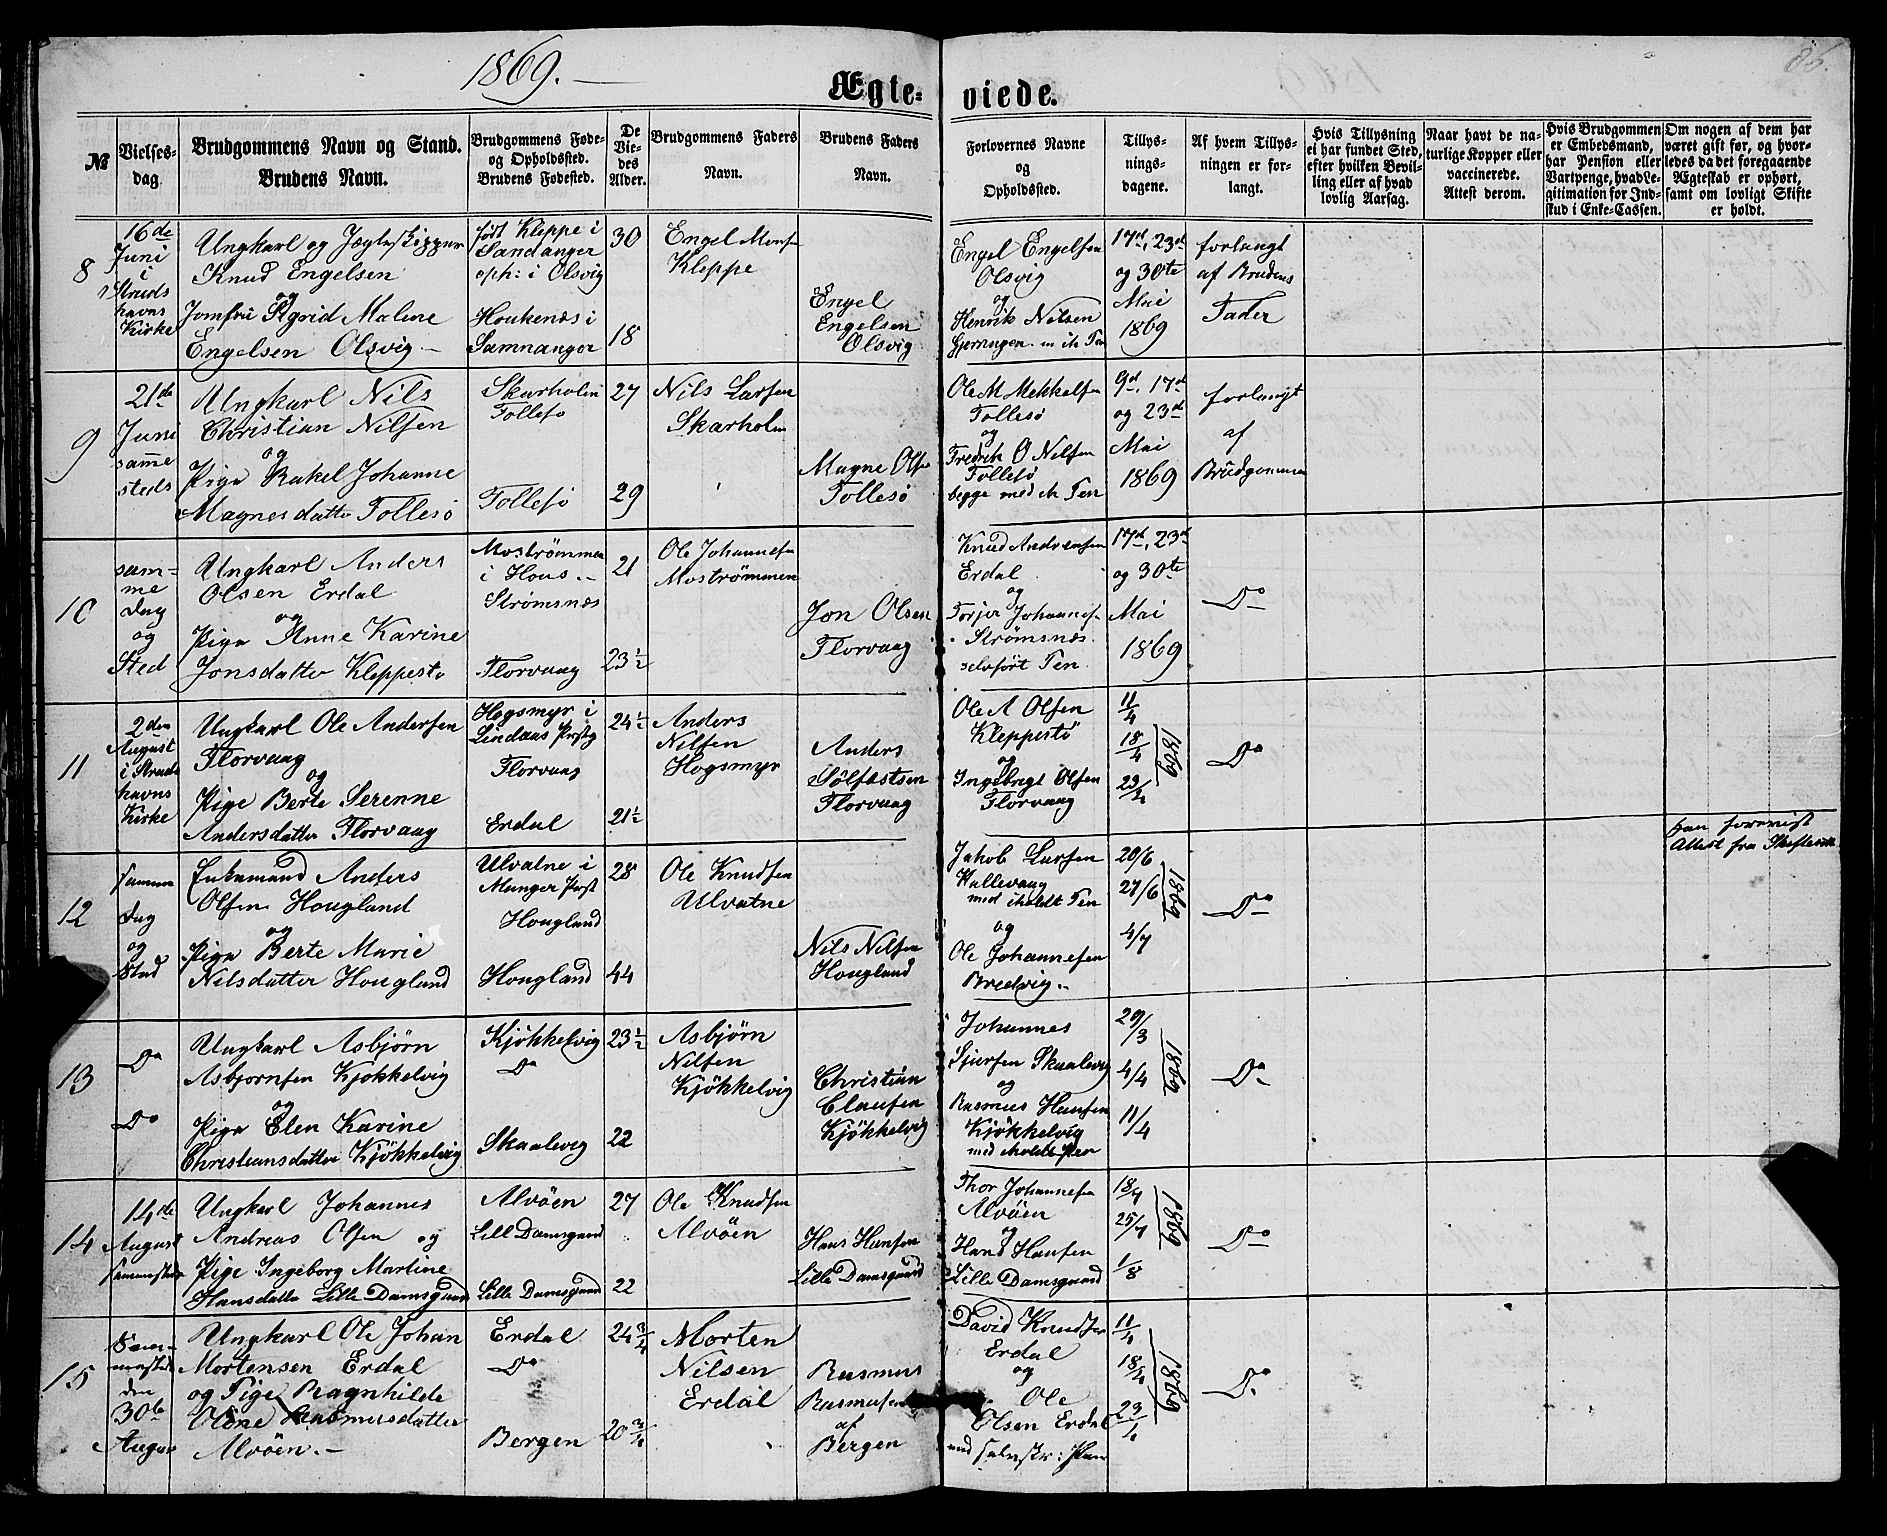 1869.
86.
Ægte-viede.
№
Vielses-
dag.
Brudgommens Navn og Stand.
Brudens Navn.
Brudgommens Føde-
og Opholdssted.
Brudens Fødested.
De
Vie-
des
Alder.
Brudgommens Faders
Navn.
Brudens Faders
Navn.
Forlovernes Navne
og
Opholdssted.
Tillys-
nings-
dagene.
Af hvem Tillys-
ningen er for-
langt.
Hvis Tillysning
ei har fundet Sted,
efter hvilken Bevil-
ling eller af hvad
lovlig Aarsag.
Naar havt de na-
turlige Kopper eller
vaccinerede.
Attest derom.
Hvis Brudgommen
er Embedsmand,
har Pension eller
Vartpenge, hvad Le-
gitimation for Ind-
skud i Enke-Cassen.
Om nogen af dem har
været gift før, og hvor-
ledes da det foregaaende
Ægteskab er ophørt,
samt om lovligt Skifte
er holdt.
8
16de
Juni
i
Struds
havns
Kirke
Ungkarl og
Knud Engelsen
og
Jomfru Sigrid Malene
Engelsen Olsvig
født Kleppe i
Sandanger
oph: i Olsvig
Houkenæs i
Samnanger
30
18
Engel Mons
Kleppe
Engel
Engelsen
Olsvig
Engel Engelsen
Olsvig
og
Henrik Nilsen
17d, 23d
og 30te
Mai
1869
forlangt
af Brudens
Fader
9
21de
Juni
samme
steds
Ungkarl Nils
Christian Nilsen
og
Pige Rakel Johanne
Magnesdatter Follesö
Skarholm
Follesö
Follesö
27
29
Nils Larsen
Skarholm
Magne Olsen
Follesö
Ole M Mekkelsen
Follesö
og
Fredrik O Nilsen
Follesö
begge med
9d, 17d
og 23d
Mai
1869
forlangt
af
Brudgommen
10
sam-
me
Dag
og
Sted
Ungkarl Anders
Olsen Erdal
og
Pige Anne Karine
Jonsdatter Kleppestö
Moströmmen
i Hous
Strömsnæs
Florvaag
21
23½
Ole Johannesen
Moströmmen
Jon Olsen
Florvaag
Knud Andersen
Erdal
og
Torjer Johannes
Strömsnæs
17d, 23d
og 30te
Mai
1869
Do
11
2den
August
i Struds
havns
Kirke
Ungkarl Ole Andersen
Florvaag
og
Pige Berte Serenne
Andersdatter Florvaag
Hogsmyr i
Lindaas Prstg
Florvaag
Erdal
24½
21½
Anders
Nilsen
Hogsmyr
Anders
Sölfestsen
Florvaag
Ole A Olsen
Kleppestö
og
Ingebrigt Olsen
Florvaag
11/4
18/4
1869
Do
12
samme
Dag
og
Sted
Enkemand Anders
Olsen Hougland
og
Pige Berte Marie
Nilsdatter Hougland
Ulvatne i
Manger Prst
Hougland
Hougland
28
44
Ole Knudsen
Ulvatne
Nils Nilsen
Hougland
Jakob Larsen
og
Ole Johannesen
Bredvig
20/6
27/6
4/7
1869
Do
han forevist
Attest fra
13
Do
Do
Ungkarl Asbjörn
Asbjornsen Kjökkelvig
og
Pige Elen Karine
Christiansdatter Kjökkelvig
Kjökkelvig
Do
Skaalevig
23½
22
Asbjörn
Nilsen
Kjökkelvig
Christian
Clausen
Kjökkelvig
Johannes
Sjursen Skaalevig
og
Rasmus Hansen
Kjökkelvig
29/3
4/4
11/4
1869
Do
14
14de
August
Ungkarl Johannes
Andreas Olsen og
Pige Ingeborg Martine
Hansdatter Lille Damsgaard
Alvöen
Lille Damsgaard
Lille Damsgaard
27
22
Ole Knudsen
Alvöen
Hans Hansen
Lille Damsgaard
Thor Johannesen
Alvöen
og
Hans Hansen
Lille Damsgaard
18/7
25/7
1/8
1869
Do
15
den
30te
August
Ungkarl Ole Johan
Mortensen Erdal
og Pige Ragnhilde
Oline Rasmusdatter
Alvöen
Erdal
Do
Bergen
24¾
20¾
Morten
Nilsen
Erdal
Rasmus
Rasmusen
af
Bergen
David Knudsen
Erdal
og
Ole
Olsen Erdal
1869
Do